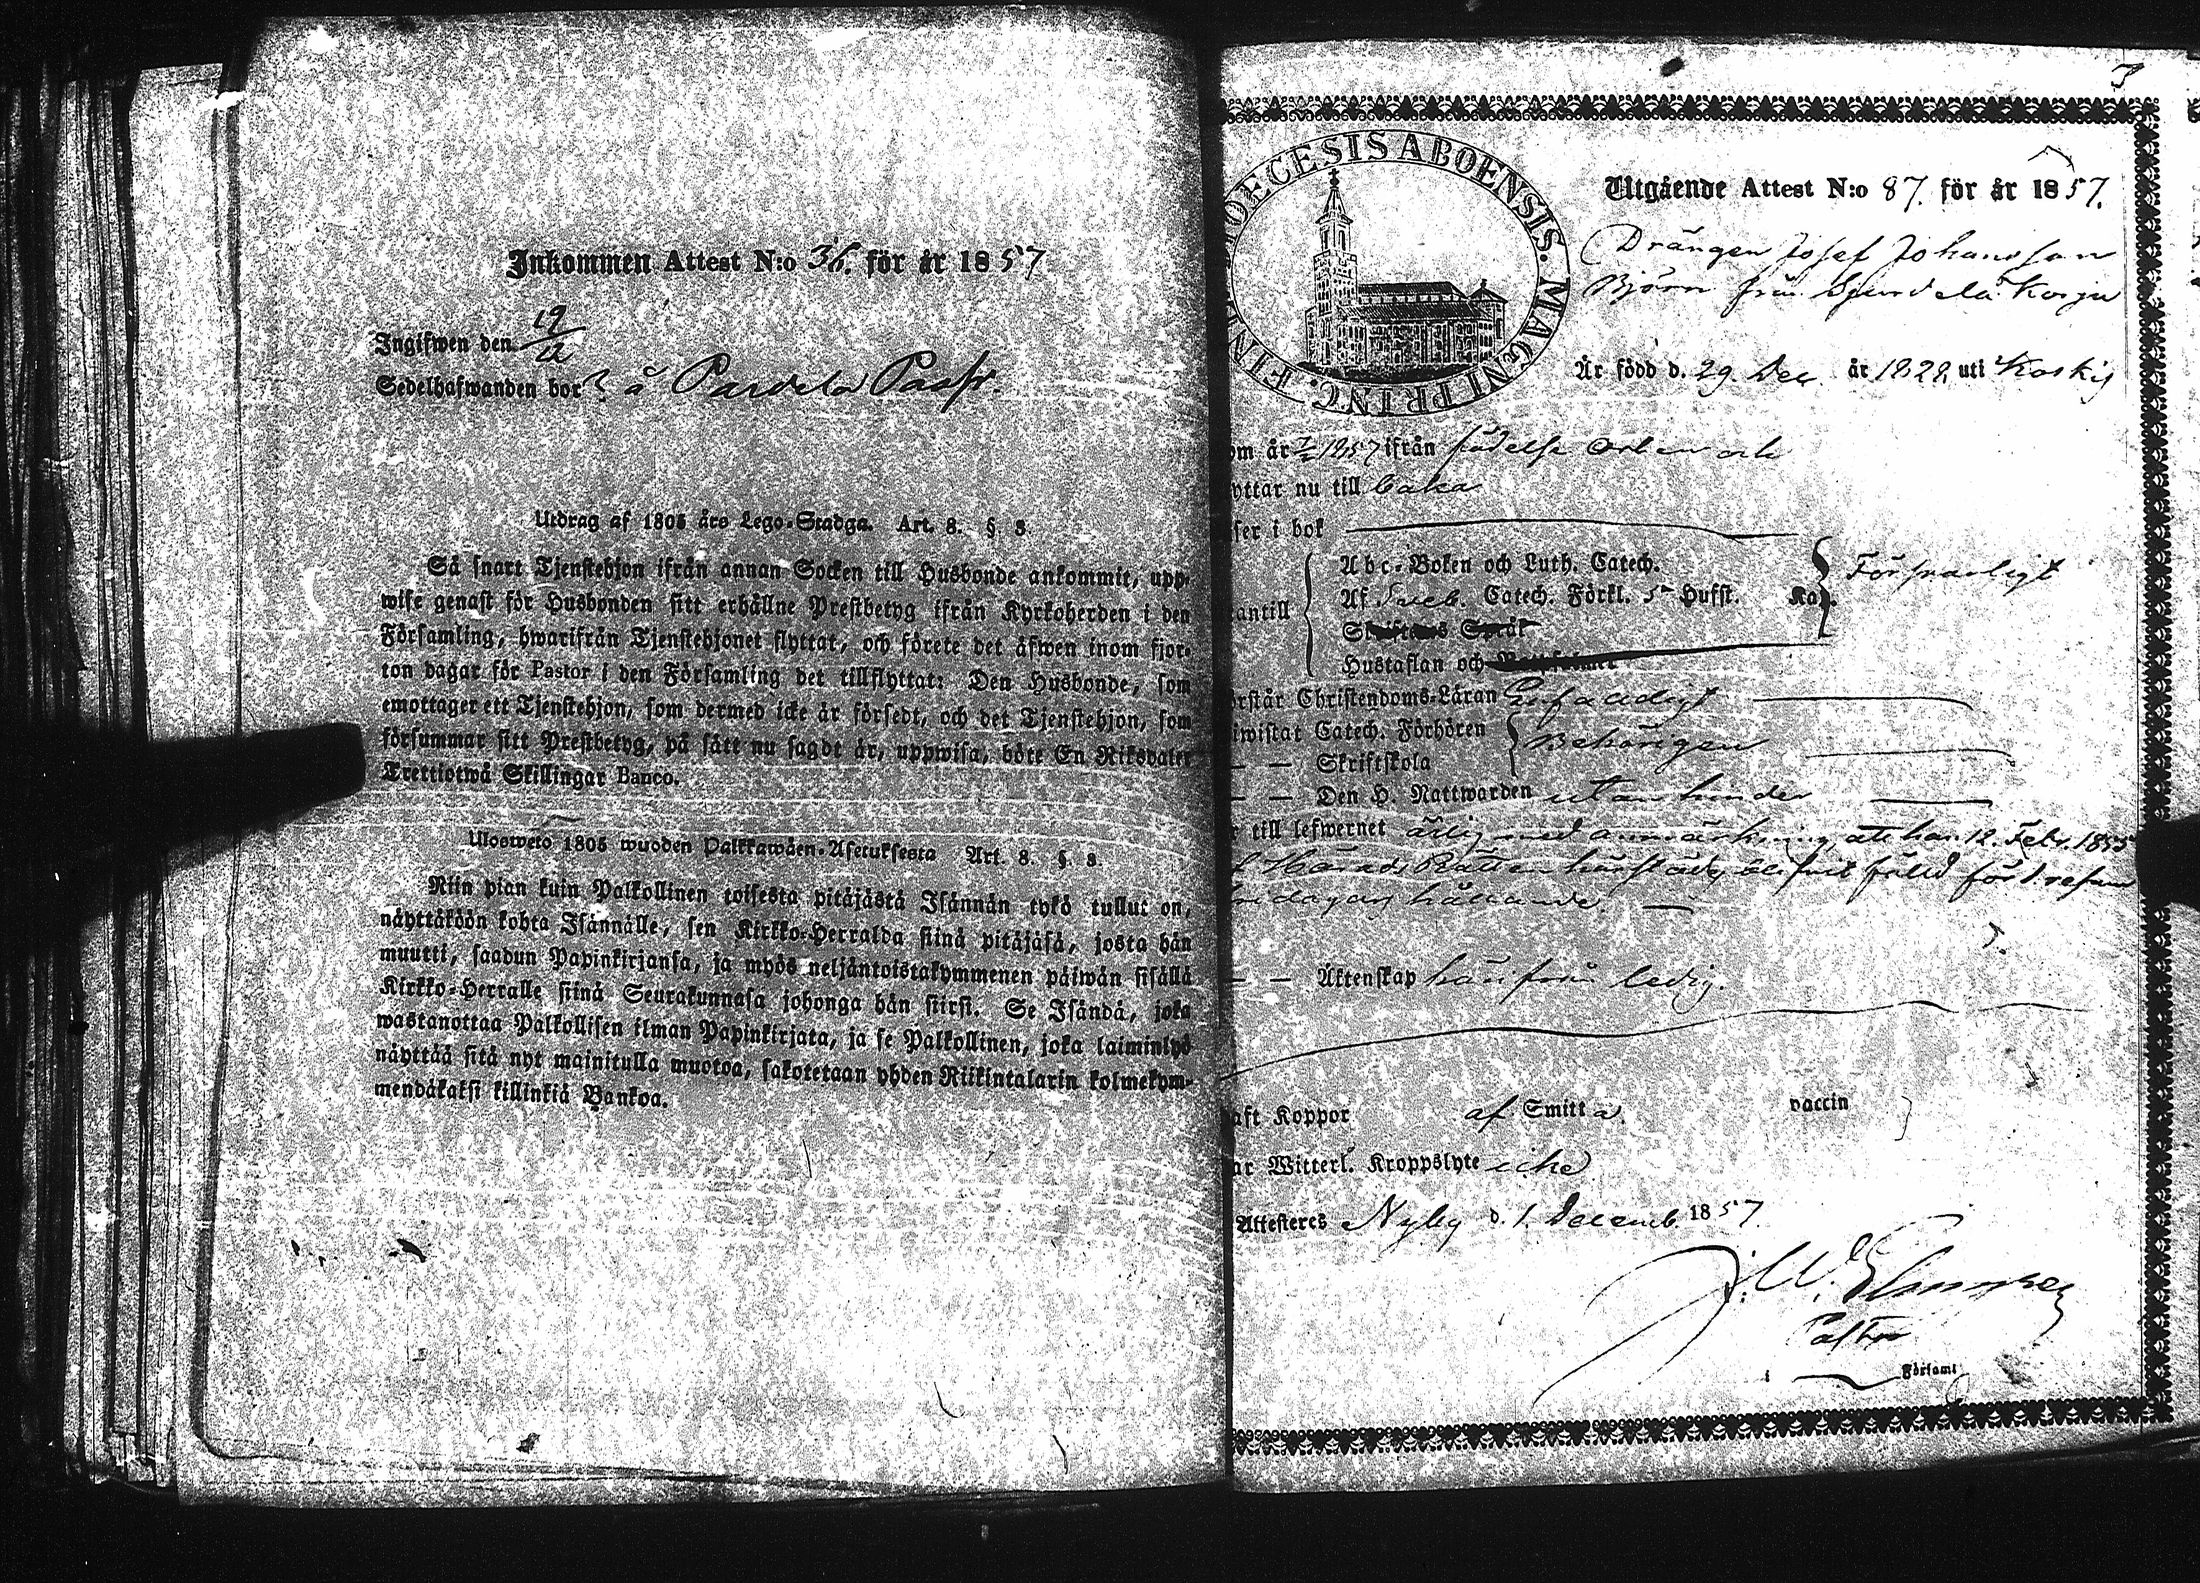 Inkommen Attest N:o 36. för år 1857
Ingifwen den 19/12
Sedelhafwanden bor å Pardela
Utdrag af 1805 års Lego-Stadga. Art. 8. §. 8.
Så snart Tjenstehjon ifrån annan Socken till Husbonde ankommit, upp-
wise genast för Husbonden sitt erhållne Prestbetyg ifrån Kyrkoherden i den
Församling, hwarifrån Tjenstehjonet flyttat, och förete det äfwen inom fjor-
ton dagar för Pastor i den Församling det tillflyttat: Den Husbonde, som
emottager ett Tjenstehjon, som dermed icke är försedt, och det Tjenstehjon, som
försummar sitt Prestbetyg, på sätt nu sagdt är, uppwisa, böte En Riksdaler
Trettiotwå Skillingar Banco.
Uloswetö 1805 wuoden Palkkawäen-Asetuksesta Art. 8. §. 8.
Niin pian kuin Palkollinen toisesta pitäjästä Isännän tykö tullut on,
näyttäköön kohta Isännälle, sen Kirkko-Herralda siinä pitäjäsä, josta hän
muutti, saadun Papinkirjansa, ja myös neljäntoistakymmenen päiwän sisällä
Kirkko-Herralle siinä Seurakunnasa johonga hän siirsi. Se Isändä, joka
wastanottaa Palkollisen ilman Papinkirjata, ja se Palkollinen, joka laiminlyö
näyttää sitä nyt mainitulla muotoa, sakotetaan yhden Riikintalarin kolmekym-
mendäkaksi killinkiä Bankoa.
3
DIOECESIS ABOENSIS. MAGNI PRINC. FINL
Utgående Attest N:o 87. för år 1857.
Drängen Josef Johansson
Björn från
Är född d. 29. Dec. år 1828 uti Koskis
om år 1857 ifrån födelse orten och
yttar nu till baka
ser i bok
antill
Abc-Boken och Luth. Catech.
Af Sveb. Catech. Förkl. 5 Hufst. Kap.
Försvarligt
Skriftens Språk
Hustaflan och
örstår Christendoms-Läran
iwistat Catech. Förhören Behörigen
— — Skriftskola
— — Den H. Nattwarden utan hinder
till lefwernet ärlig med anmärkning, att han 12. Febr. 1855
af Härads Rätten härstädes blifvit fälld för
hållande.
— — Äktenskap härifrån ledig.
aft Koppor af Smitta. vaccin
ar Witterl. Kroppslyte icke
Attesteres Nyby d. 1. Decemb. 1857.
Pastor
i Församl